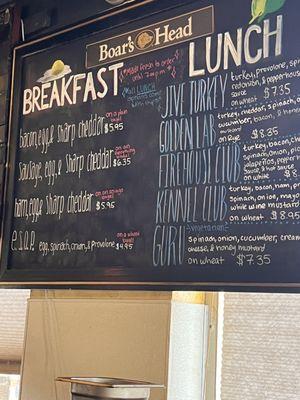 Boar's Head
BREAKFAST
*Made fresh to order
until 2pm*
LUNCH
bacon, egg & sharp cheddar
on a plain bagel
$5.95
Sausage, egg & sharp cheddar
on an everything bagel
$6.35
ham, egg & sharp cheddar
on an asiago bagel
$5.95
e.s.o.p.
egg, spinach, onion, & provolone
on a wheat bagel
$4.95
JIVE TURKEY
turkey, provolone, sp
onion, & pepperhouse
sauce
on wheat $7.35
GOLDEN LAB
turkey, cheddar, spinach,
cucumber, bacon, & honey
mustard
on Rye $8.35
CLUB
spinach, onion,
jalapeños, pepper
& hot sauce
on white $8.
KENNEL CLUB
turkey, bacon, ham,
spinach, onion, mayo
white wine mustard
on Wheat $8.95
GURU
(vegetarian)
spinach, onion, cucumber, cream
cheese, & honey mustard
on wheat $7.35